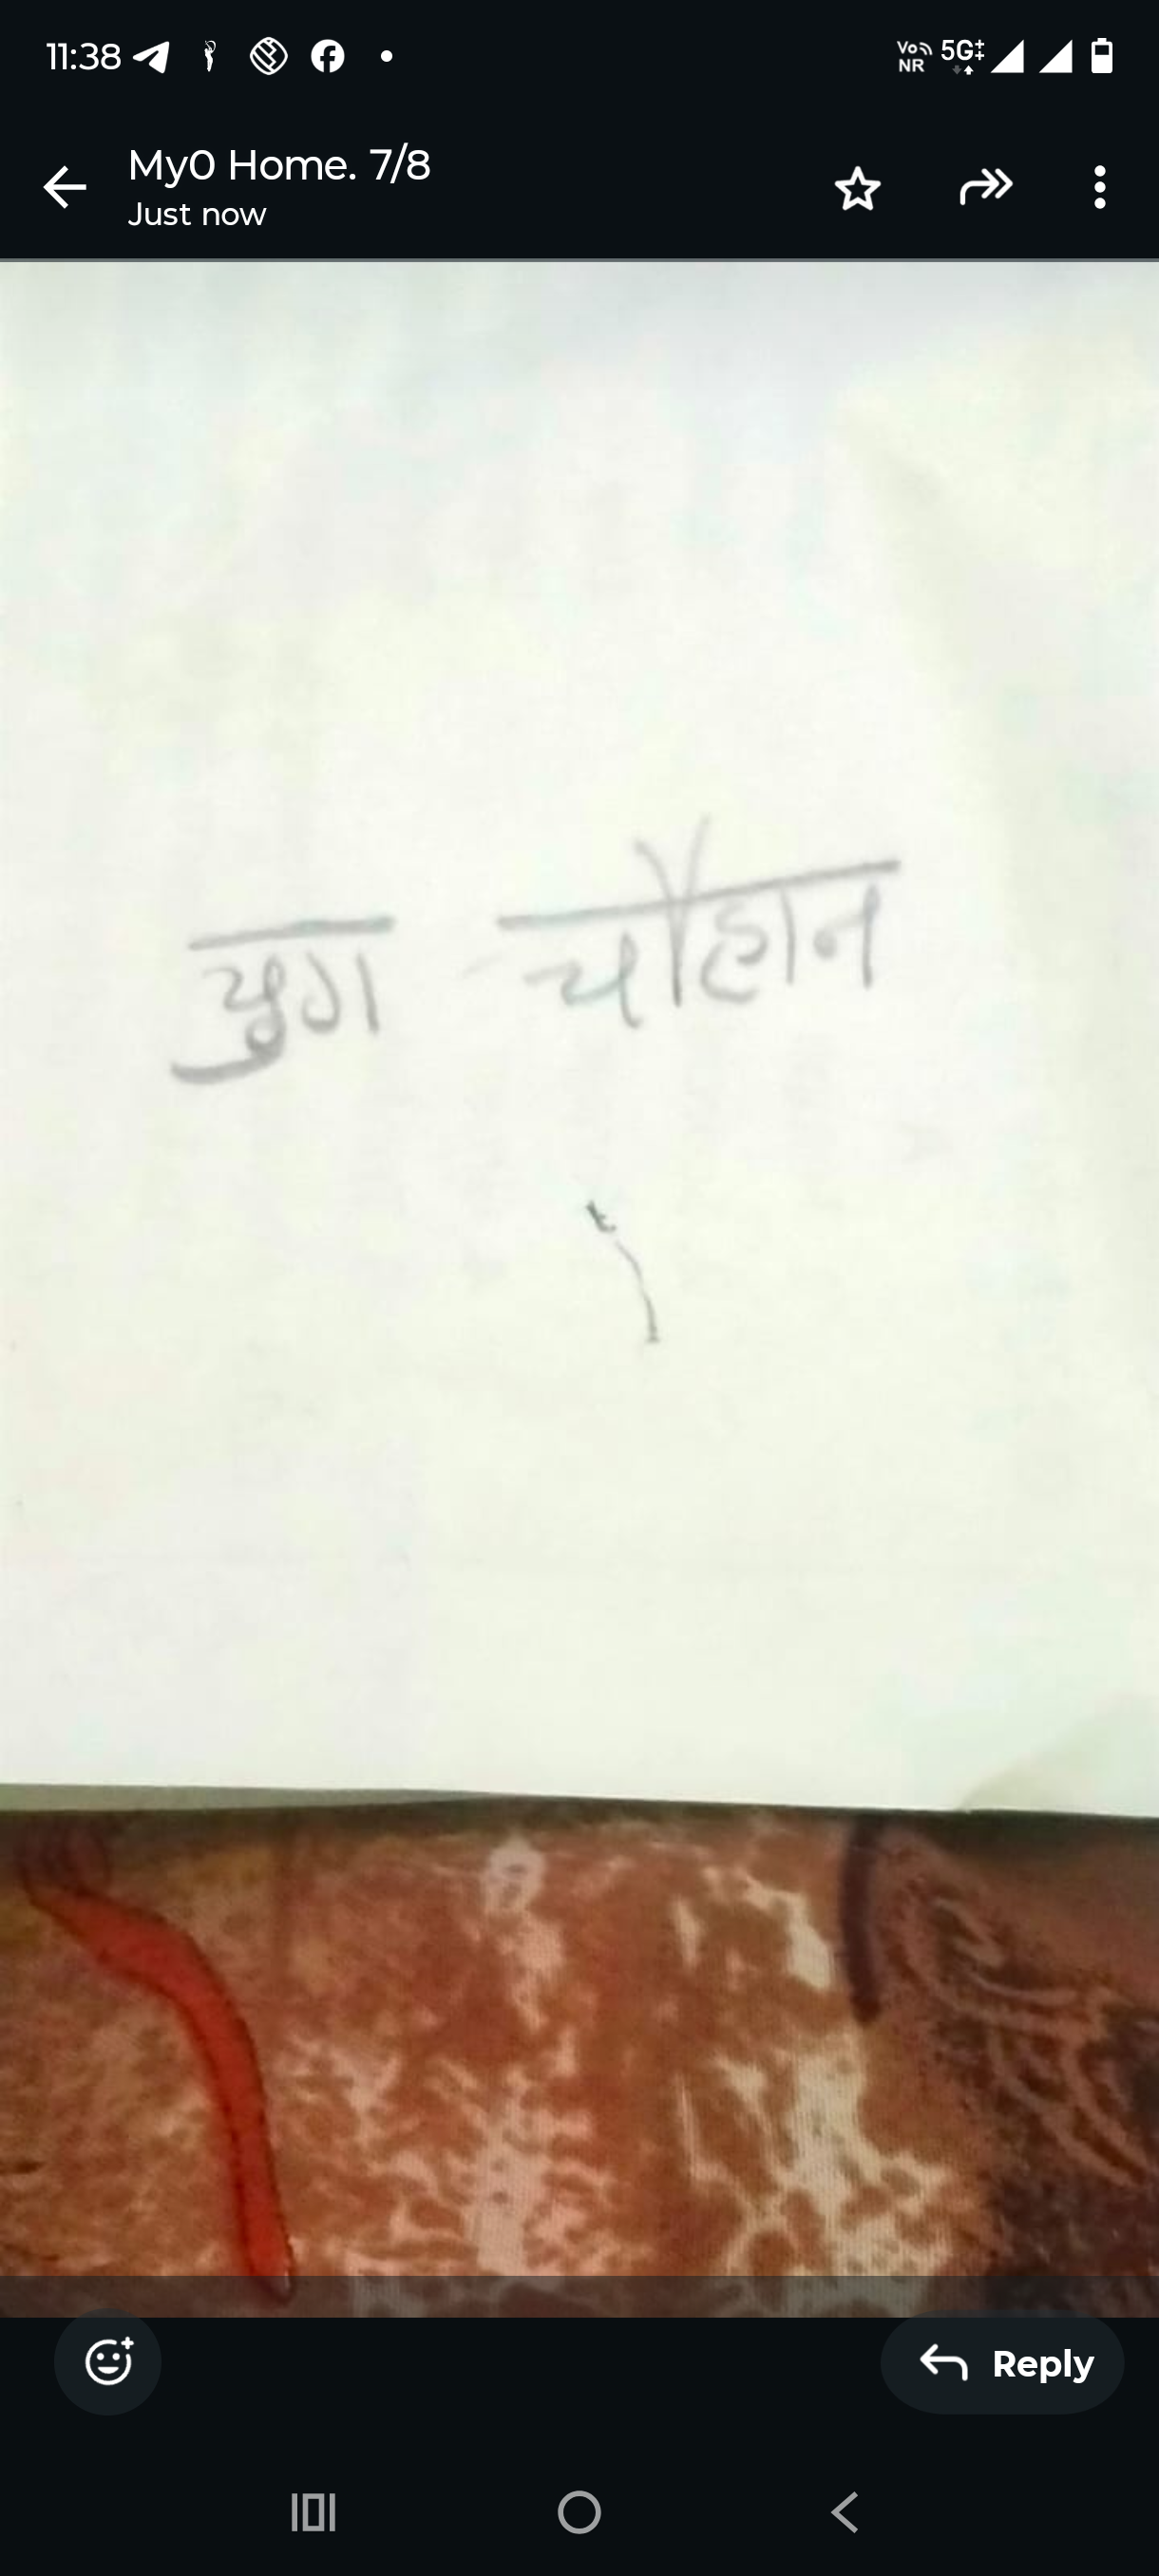 11:38
VoNR 5G
My0 Home. 7/8
Just now
युग चौहान
Reply